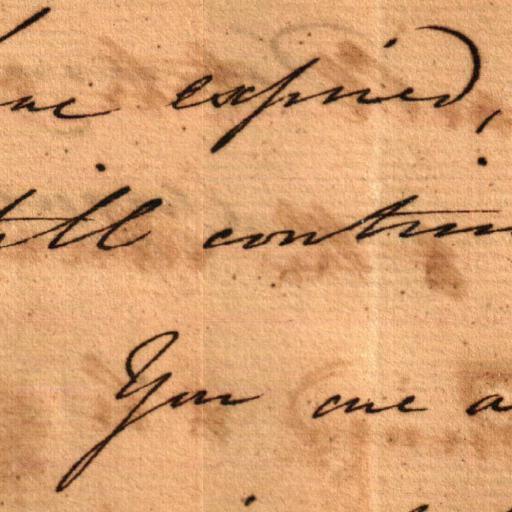 expired,
still contin
You are a